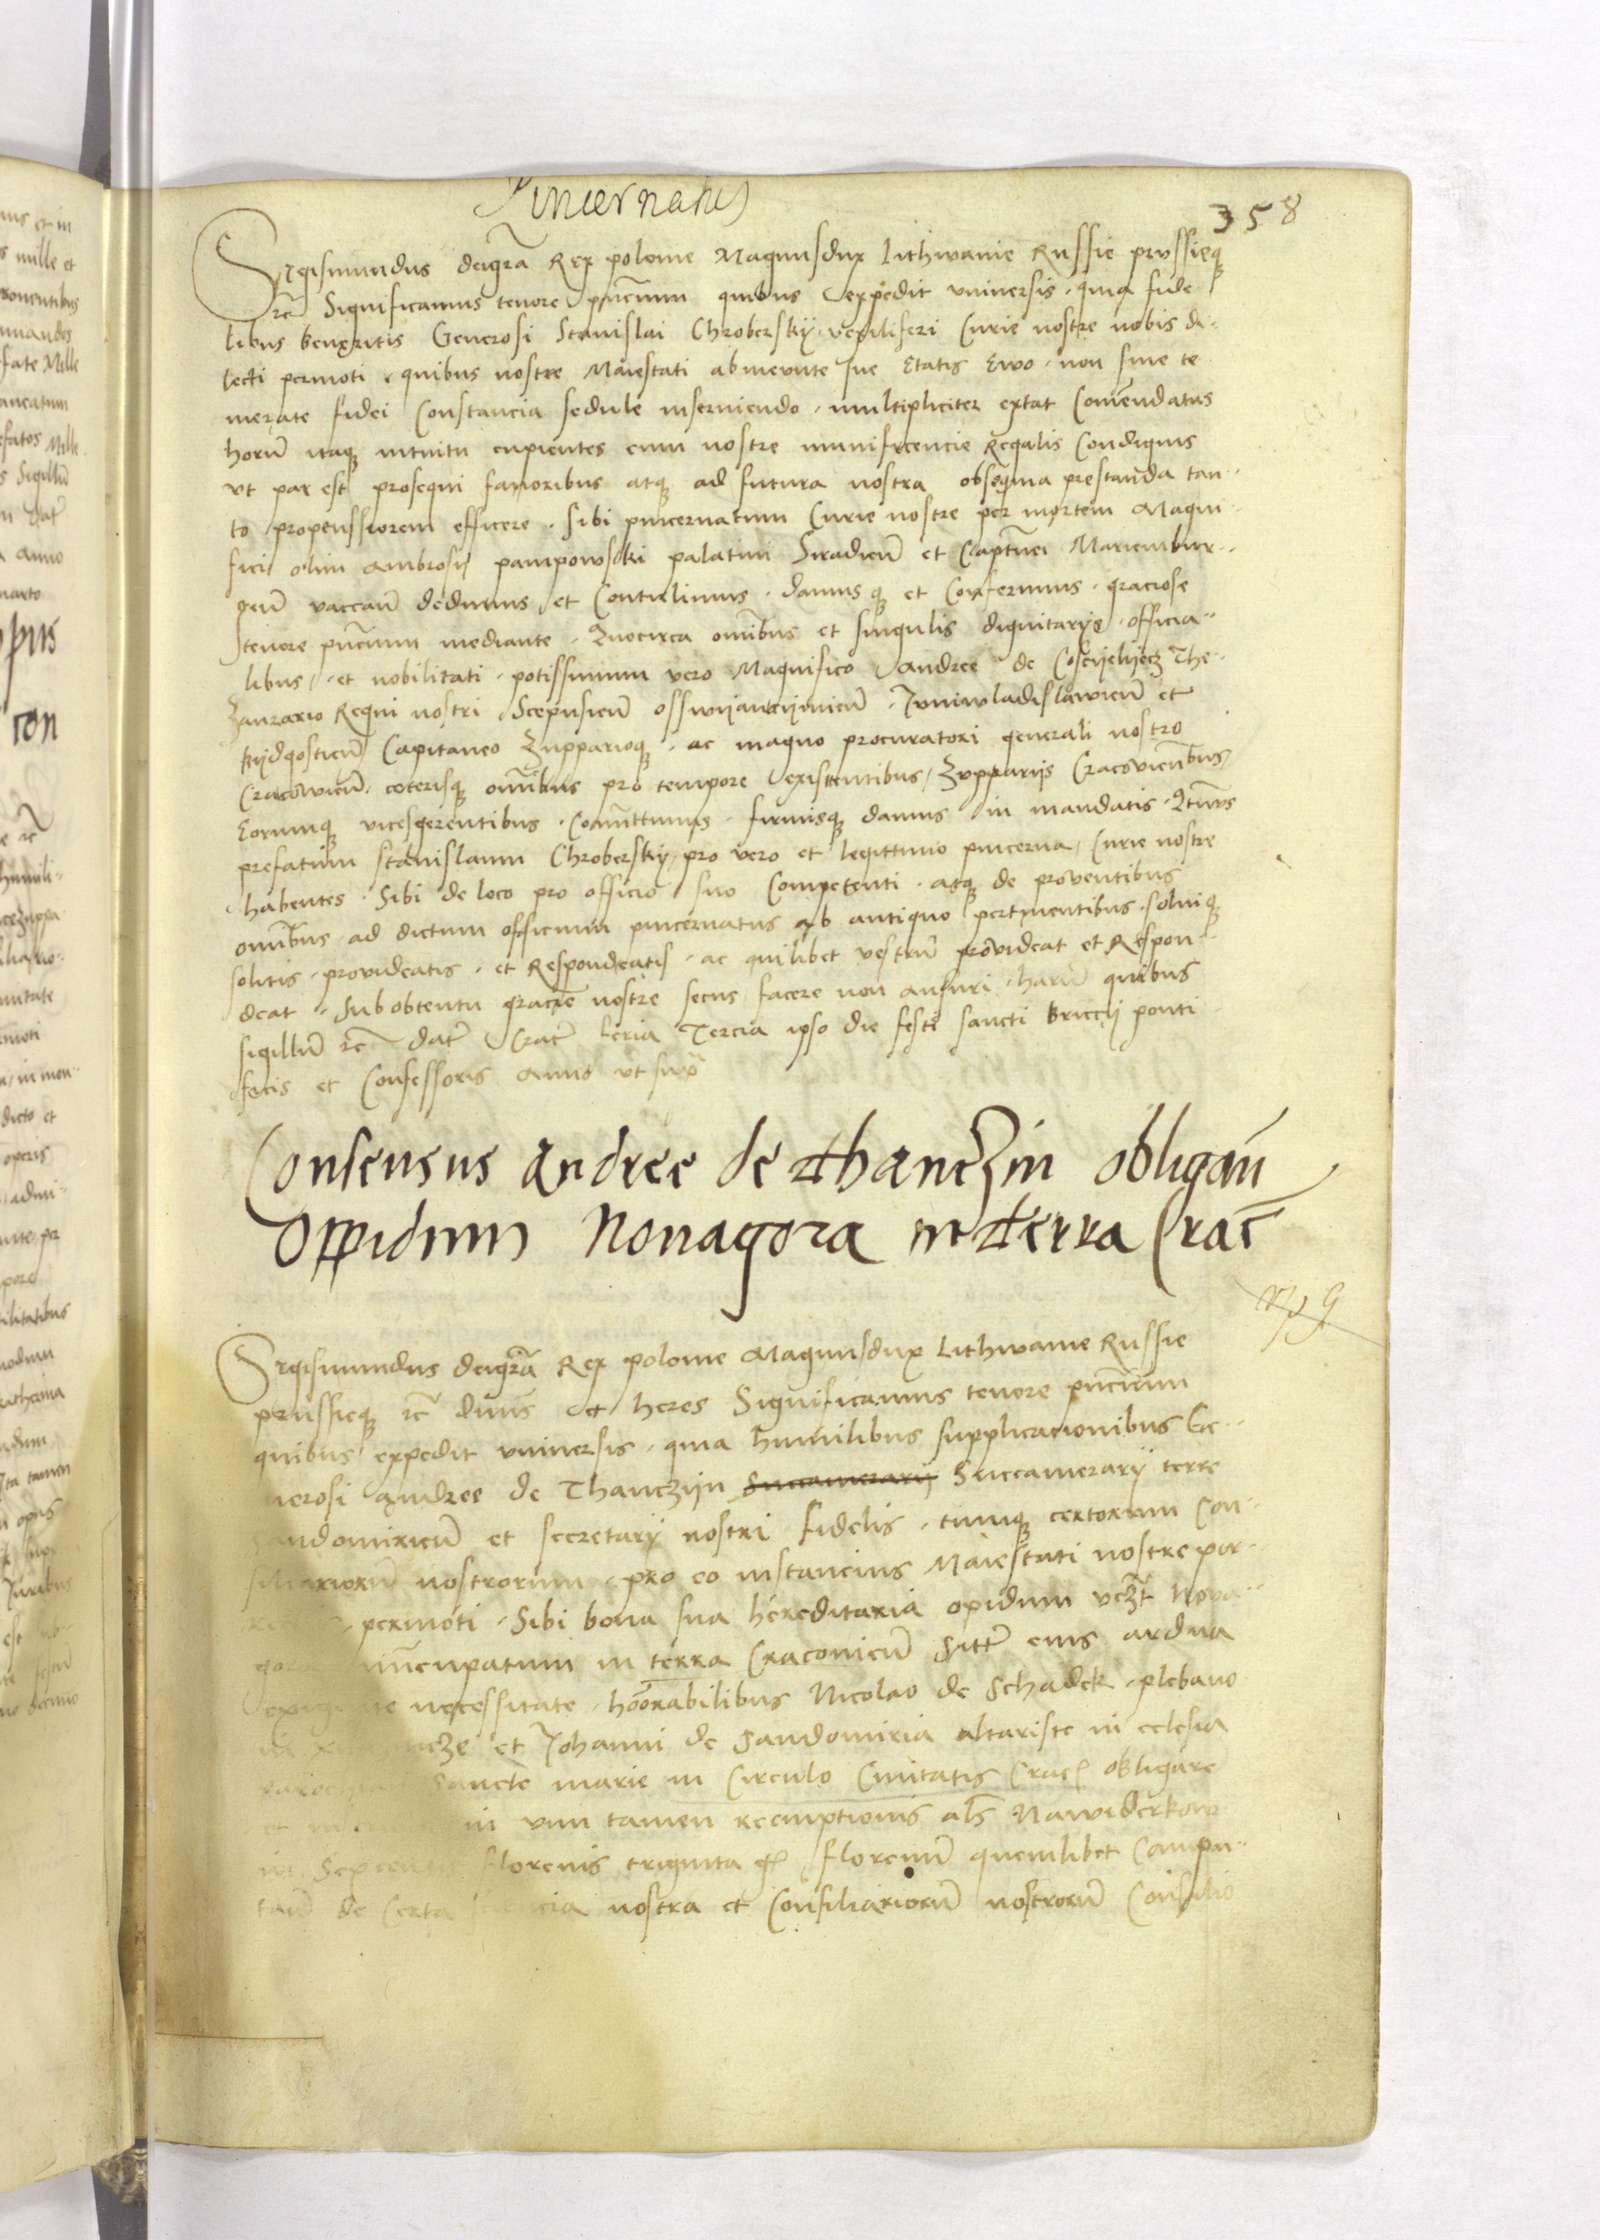 Pincernatus
358
Sigismundus deigra Rex polonie Magnusdux Lithwanie Russie prussieq
rc Significamus tenore pntium quibus expedit vniversis quia fide
libus bene meritis Generosi Stanislai Chroberskij vexiliferi Curie nostre nobis di
lecti permoti quibus nostre Maiestati ab ineunte sue Etatis Evo non sine te
merate fidei Constancia sedule inserviendo multipliciter extat Comendatus
horu itaq intuitu cupientes eum nostre munificencie Regalis Condignis
vt par est prosequi favoribus atq ad futura nostra obsequia prestanda tan
to propenssiorem efficere Sibi pincernatum Curie nostre per mortem Magni
fici olim Ambrosij pampowski palatini Siradien et Captnei Marienbur
gen vaccan dedimus et Contulimus damus q et Conferimus graciose
tenore pntium mediante Quocirca omnibus et singulis dignitarijs officia
libus et nobilitati potissimum vero Magnifico Andree de Cosczijelijecz The
zaurario Regni nostri Scepusien osswijanczijmien Juniwladislawien et
bijdgostien Capitaneo Zupparioq ac magno procuratori generali nostro
Cracovien ceterisq omnibus pro tempore existentibus Zuppariis Cracovienbus
Eorumq vicesgerentibus Comittimus firmisq damus in mandatis Qtnus
prefatum Stanislaum Chroberskij pro vero et legittimo pincerna Curie nostre
habentes Sibi de loco pro officio suo Competenti atq de proventibus
omnibus ad dictum officium pincernatus ab antiquo pertinentibus solviq
solitis provideatis et Respondeatis ac quilibet vestrum provideat et Respon
deat Sub obtentu gracie nostre secus facere non ausuri haru quibus
sigillu rc dat Crac feria Tercia ipso die festi sancti Briccij ponti
ficis et Confessoris Anno vt supra
Consensus Andree de Thanczin obligan
Oppidum Novagora in terra Crac
Sigismundus deigra Rex polonie Magnusdux Lithwanie Russie
prussieq rc dnus et heres Significamus tenore pntium
quibus expedit vniversis quia humilibus supplicacionibus Ge
nerosi Andree de Thanczijn Succamerarij Succamerarij terre
Sandomirien et secretarij nostri fidelis tumq certorum Con
siliariorum nostrorum pro eo instancius Maiestati nostre por
permoti Sibi bona sua hereditaria opidum vczt Nova
gora nuncupatum in terra Cracovien sitt eius ardua
exigente necessitate honorabilibus Nicolao de Schadek plebano
et Johanni de Sandomiria altariste in eclesia
Sancte marie in Circulo Civitatis Crac obligare
et in vim tamen reemptionis als Nawiderkow
in Septentis florenis triginta gr florenu quemlibet Compu
tan de Certa sciencia nostra et Consiliarioru nostroru Consilio